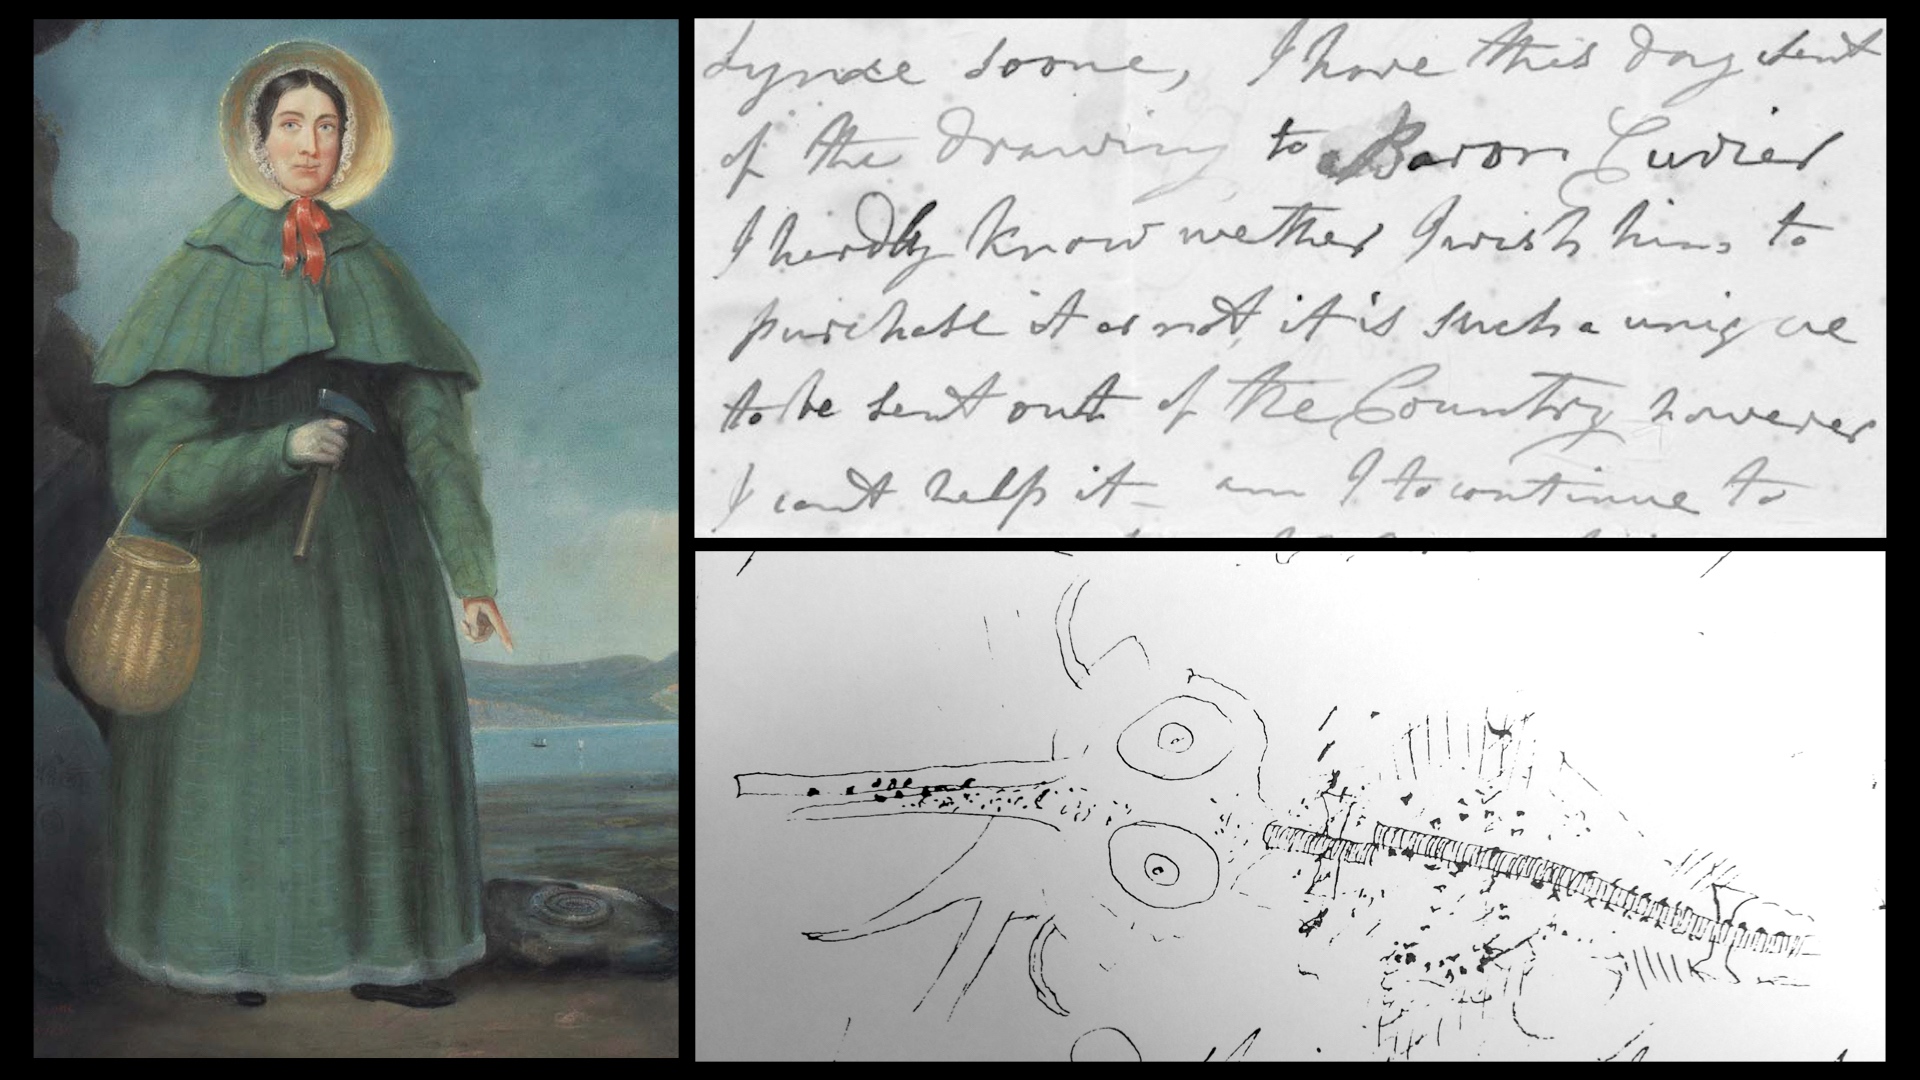 Lyme soone, I have this day sent
of the drawing to Baron Cuvier
I herdly know wether I wish him to
purchase it or not, it is such a unique
to be sent out of the Country however
I cant help it - am I to continue to